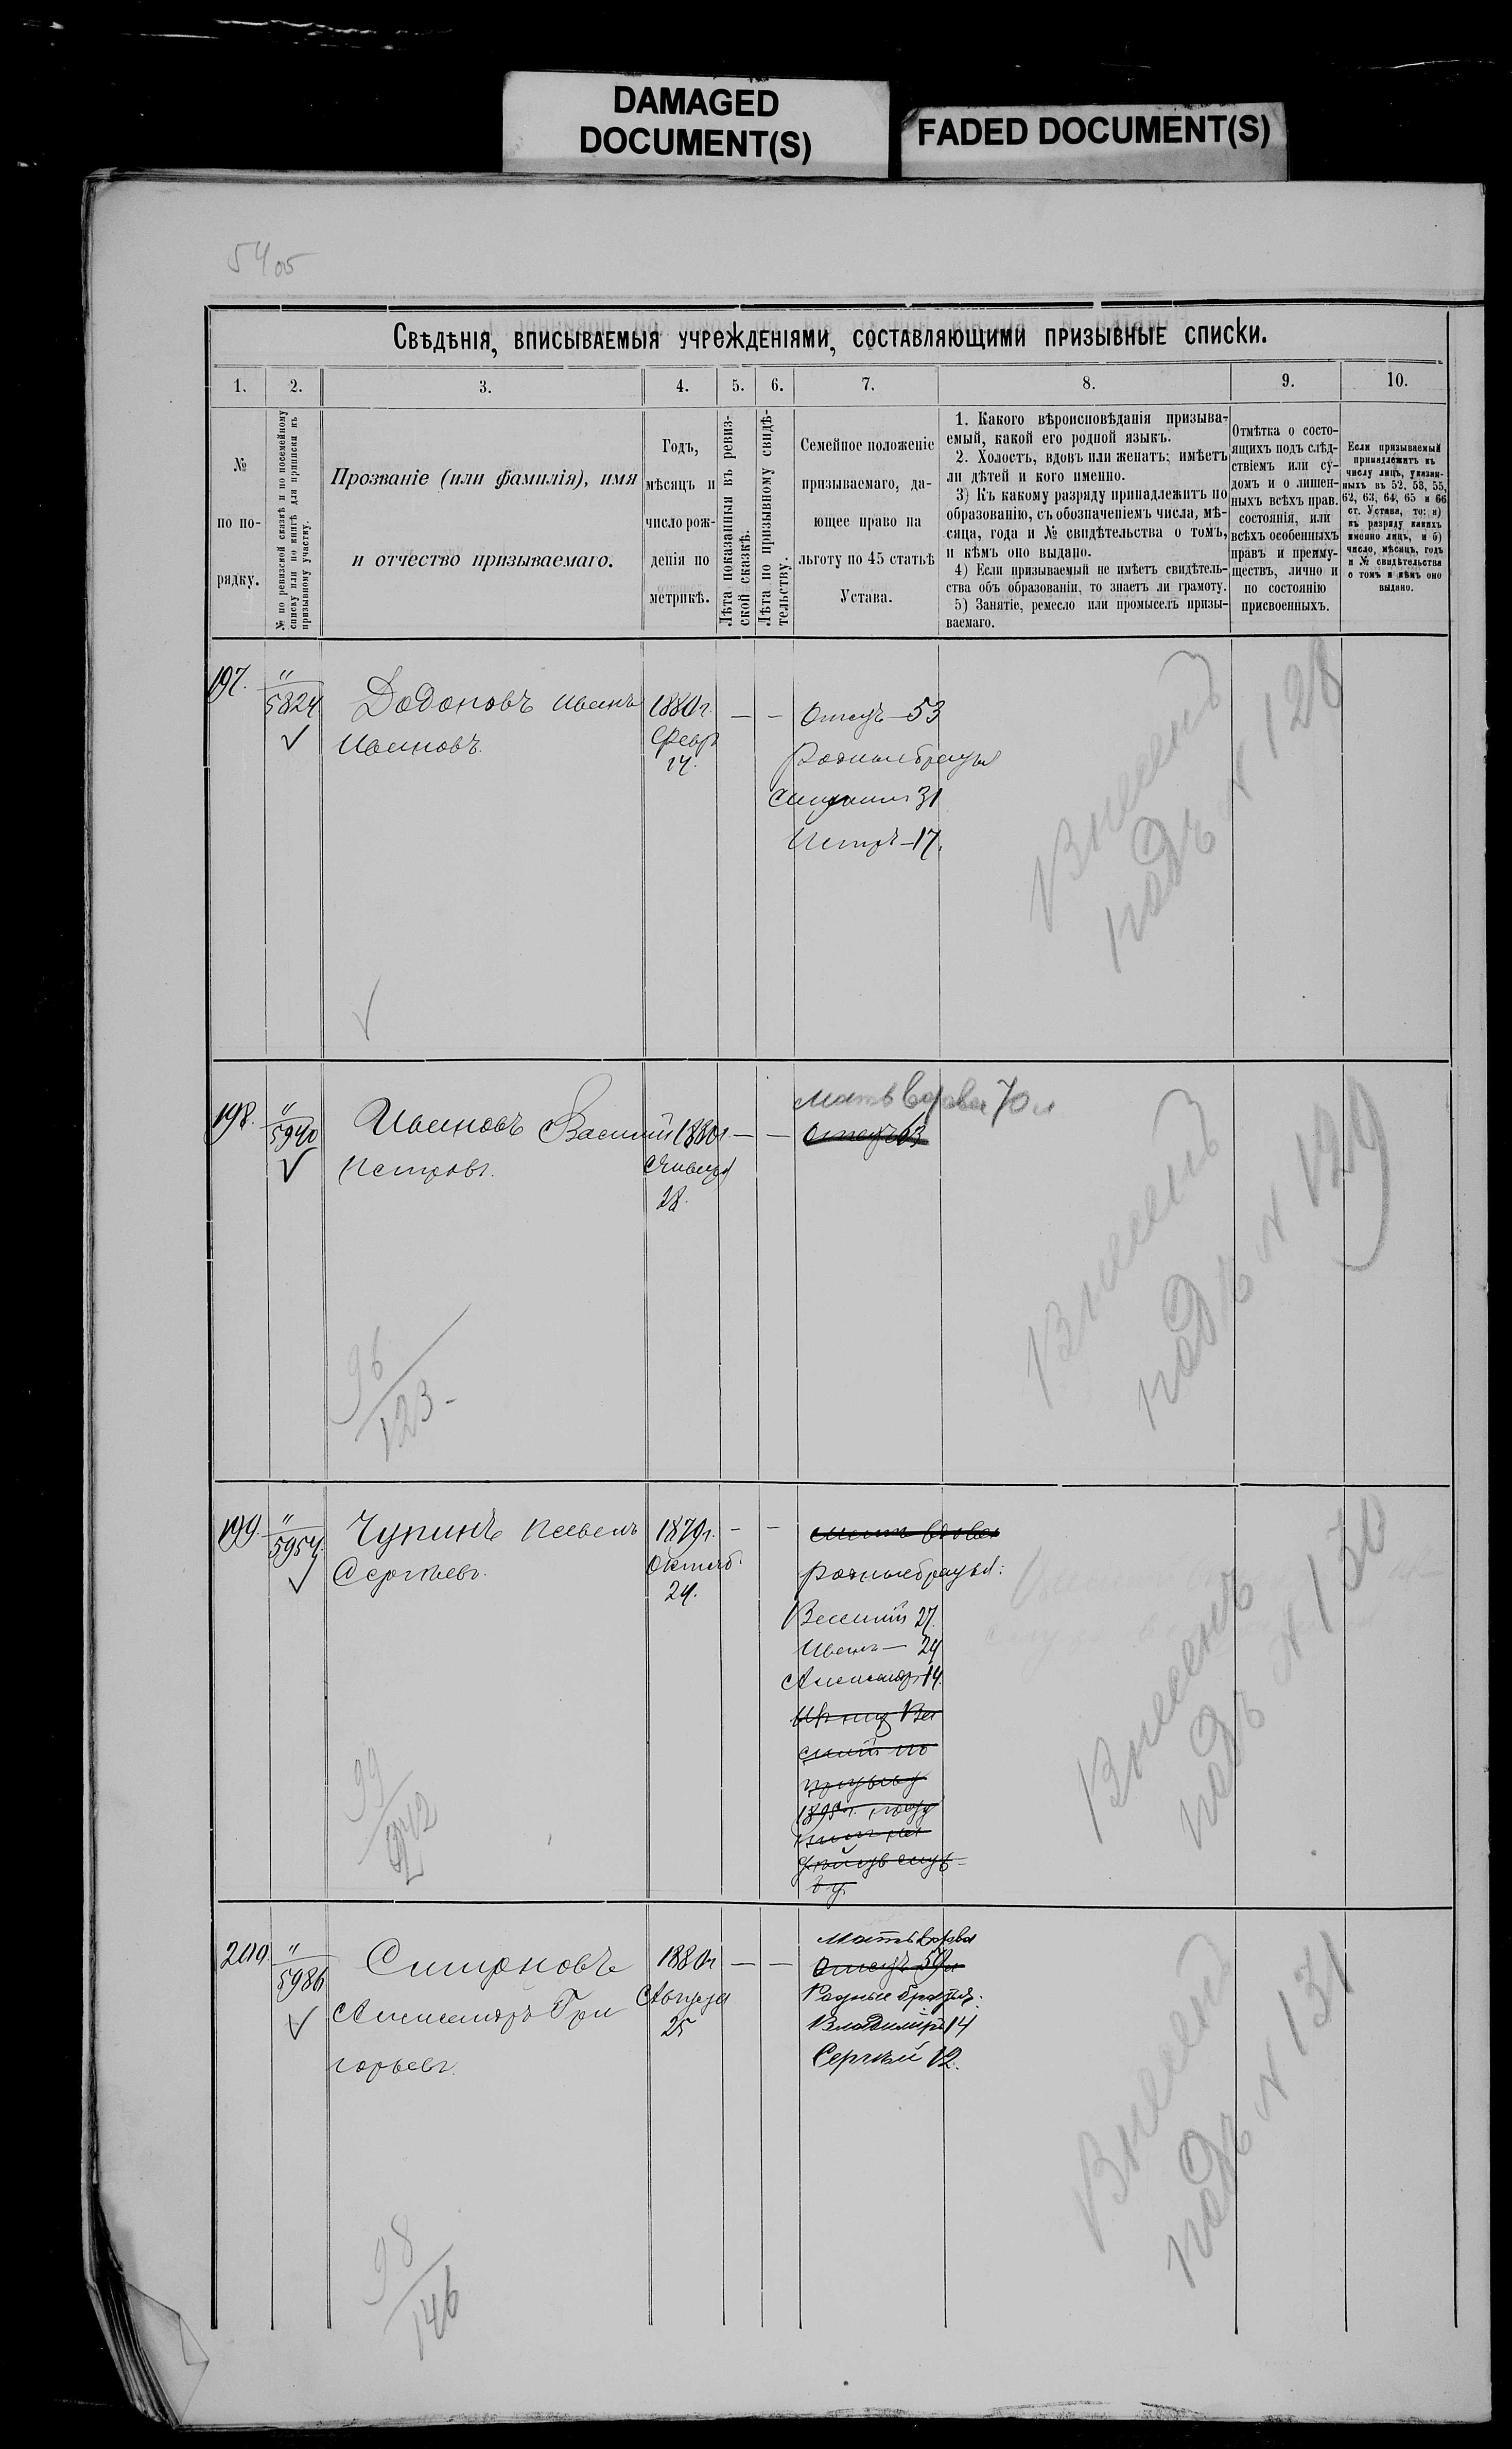 DAMAGED
DOCUMENT(S)
FADED DOCUMENT(S)
5405
Свѣдѣнія, вписываемыя учрежденіями, составляющими призывные списки.
1.
2.
3.
4.
5.
6.
7.
8.
9.
10.
№
по по-
рядку.
№ по ревизской сказкѣ и по посемейному
списку или по книгѣ для приписки къ
призывному участку.
Прозваніе (или фамилія), имя
и отчество призываемаго.
Годъ,
мѣсяцъ и
число рож-
денія по
метрикѣ.
Лѣта показанныя въ ревиз-
ской сказкѣ.
Лѣта по призывному свидѣ-
тельству.
Семейное положеніе
призываемаго, да-
ющее право на
льготу по 45 статьѣ
Устава.
1. Какого вѣроисповѣданія призыва-
емый, какой его родной языкъ.
2. Холостъ, вдовъ или женатъ; имѣетъ
ли дѣтей и кого именно.
3) Къ какому разряду принадлежитъ по
образованію, съ обозначеніемъ числа, мѣ-
сяца, года и № свидѣтельства о томъ,
и кѣмъ оно выдано.
4) Если призываемый не имѣетъ свидѣтель-
ства объ образованіи, то знаетъ ли грамоту.
5) Занятіе, ремесло или промыселъ призы-
ваемаго.
Отмѣтка о состо-
ящихъ подъ слѣд-
ствіемъ или су-
домъ и о лишен-
ныхъ всѣхъ прав.
состоянія, или
всѣхъ особенныхъ
правъ и преиму-
ществъ, лично и
по состоянію
присвоенныхъ.
Если призываемый
принадлежитъ къ
числу лицъ, указан-
ныхъ въ 52, 53, 55,
62, 63, 64, 65 и 66
ст. Устава, то: а)
къ разряду какихъ
именно лицъ, и б)
число, мѣсяцъ, годъ
и № свидѣтельства
о томъ и кѣмъ оно
выдано.
197.
"
5824
Додоновъ Иванъ
Ивановъ.
1880 г.
Февр.
14.
— —
Отецъ — 53
Родные братья
31
Петръ — 17.
Внесенъ
подъ № 128
198.
"
5940
Ивановъ Василий
Петровъ.
1880 г.
Января
28.
— —
Мать вдова 70 л
Отецъ 63
Внесенъ
подъ № 129
96
123 -
199.
"
5954.
Чупинъ Павелъ
Сергѣевъ.
1879 г.
Октяб.
24.
— —
мать вдова
Родные братья:
Василий 27.
Иванъ — 24
Александръ 14.
Ва
силий по
призыву
1895 г.
на
службу
Внесенъ
подъ № 130
99
200.
"
5986
Смирновъ
Александръ Гри
горьевъ.
1880 г
Августа
25
— —
Мать вдова
Отецъ 59 л
Родные братья:
Владиміръ 14
Сергѣй 12.
Внесенъ
подъ № 131
98
146